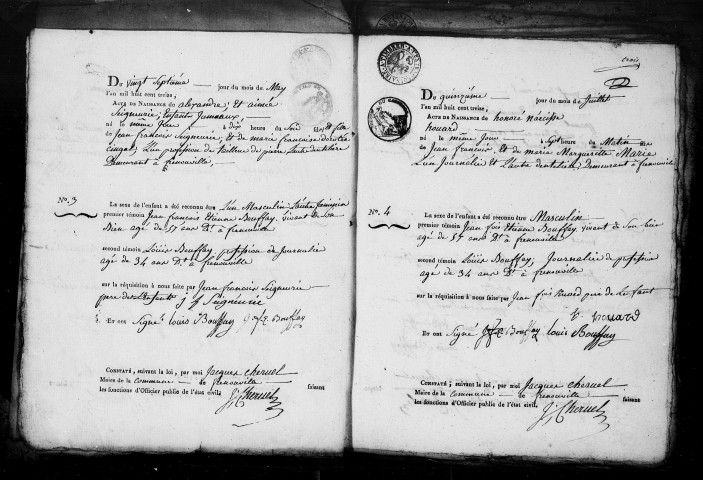 Du vingt Septième jour du mois de May
l'an mil huit cent treize,
ACTE DE NAISSANCE de alexandre; et aimée
Seigneurie, enfants Jumeaux
né le même Jour à dix heures du Soir fils et fille
de Jean françois Seigneurie, et de marie francoise
L'un profession de tailleur de pierre L'autre dentelière
Demeurant à frenouville.
No. 3
Le sexe de l'enfant a été reconnu être L'un Masculin L'autre féminin
premier témoin Jean françois Etienne Bouffay, vivant de Son
Bien agé de 57 ans Dt. à frenouville
second témoin Louis Bouffay profession de Journalier
agé de 34 ans Dt. à frenouville
sur la réquisition à nous faite par Jean francois Seigneurie
pere des Enfants j f Seigneurie
Et ont Signé louis Bouffay Bouffay
CONSTATÉ, suivant la loi, par moi Jacques cheruel
Maire de la commune de frenouville faisant
les fonctions d'Officier public de l'état civil.
J. Cheruel
trois
Du quinzième jour du mois de Juillet
l'an mil huit cent treize,
ACTE DE NAISSANCE de honoré narcisse
houard
né le même Jour à Sept heures du Matin
de Jean francois, et de marie Marguerite Marie
L'un Journalier et L'autre dentelière; Demeurant à frenouville
No. 4
Le sexe de l'enfant a été reconnu être Masculin
premier témoin Jean fois Etienne Bouffay, vivant de Son bien
agé de 57 ans Dt. à frenouville
second témoin Louis Bouffay; Journalier de profession
agé de 34 ans Dt. à frenouville
sur la réquisition à nous faite par Jean fois houard pere de L'enfant
houard
Et ont Signé Bouffay louis Bouffay
CONSTATÉ, suivant la loi, par moi Jacques cheruel
Maire de la commune de frenouville faisant
les fonctions d'Officier public de l'état civil.
J. Cheruel